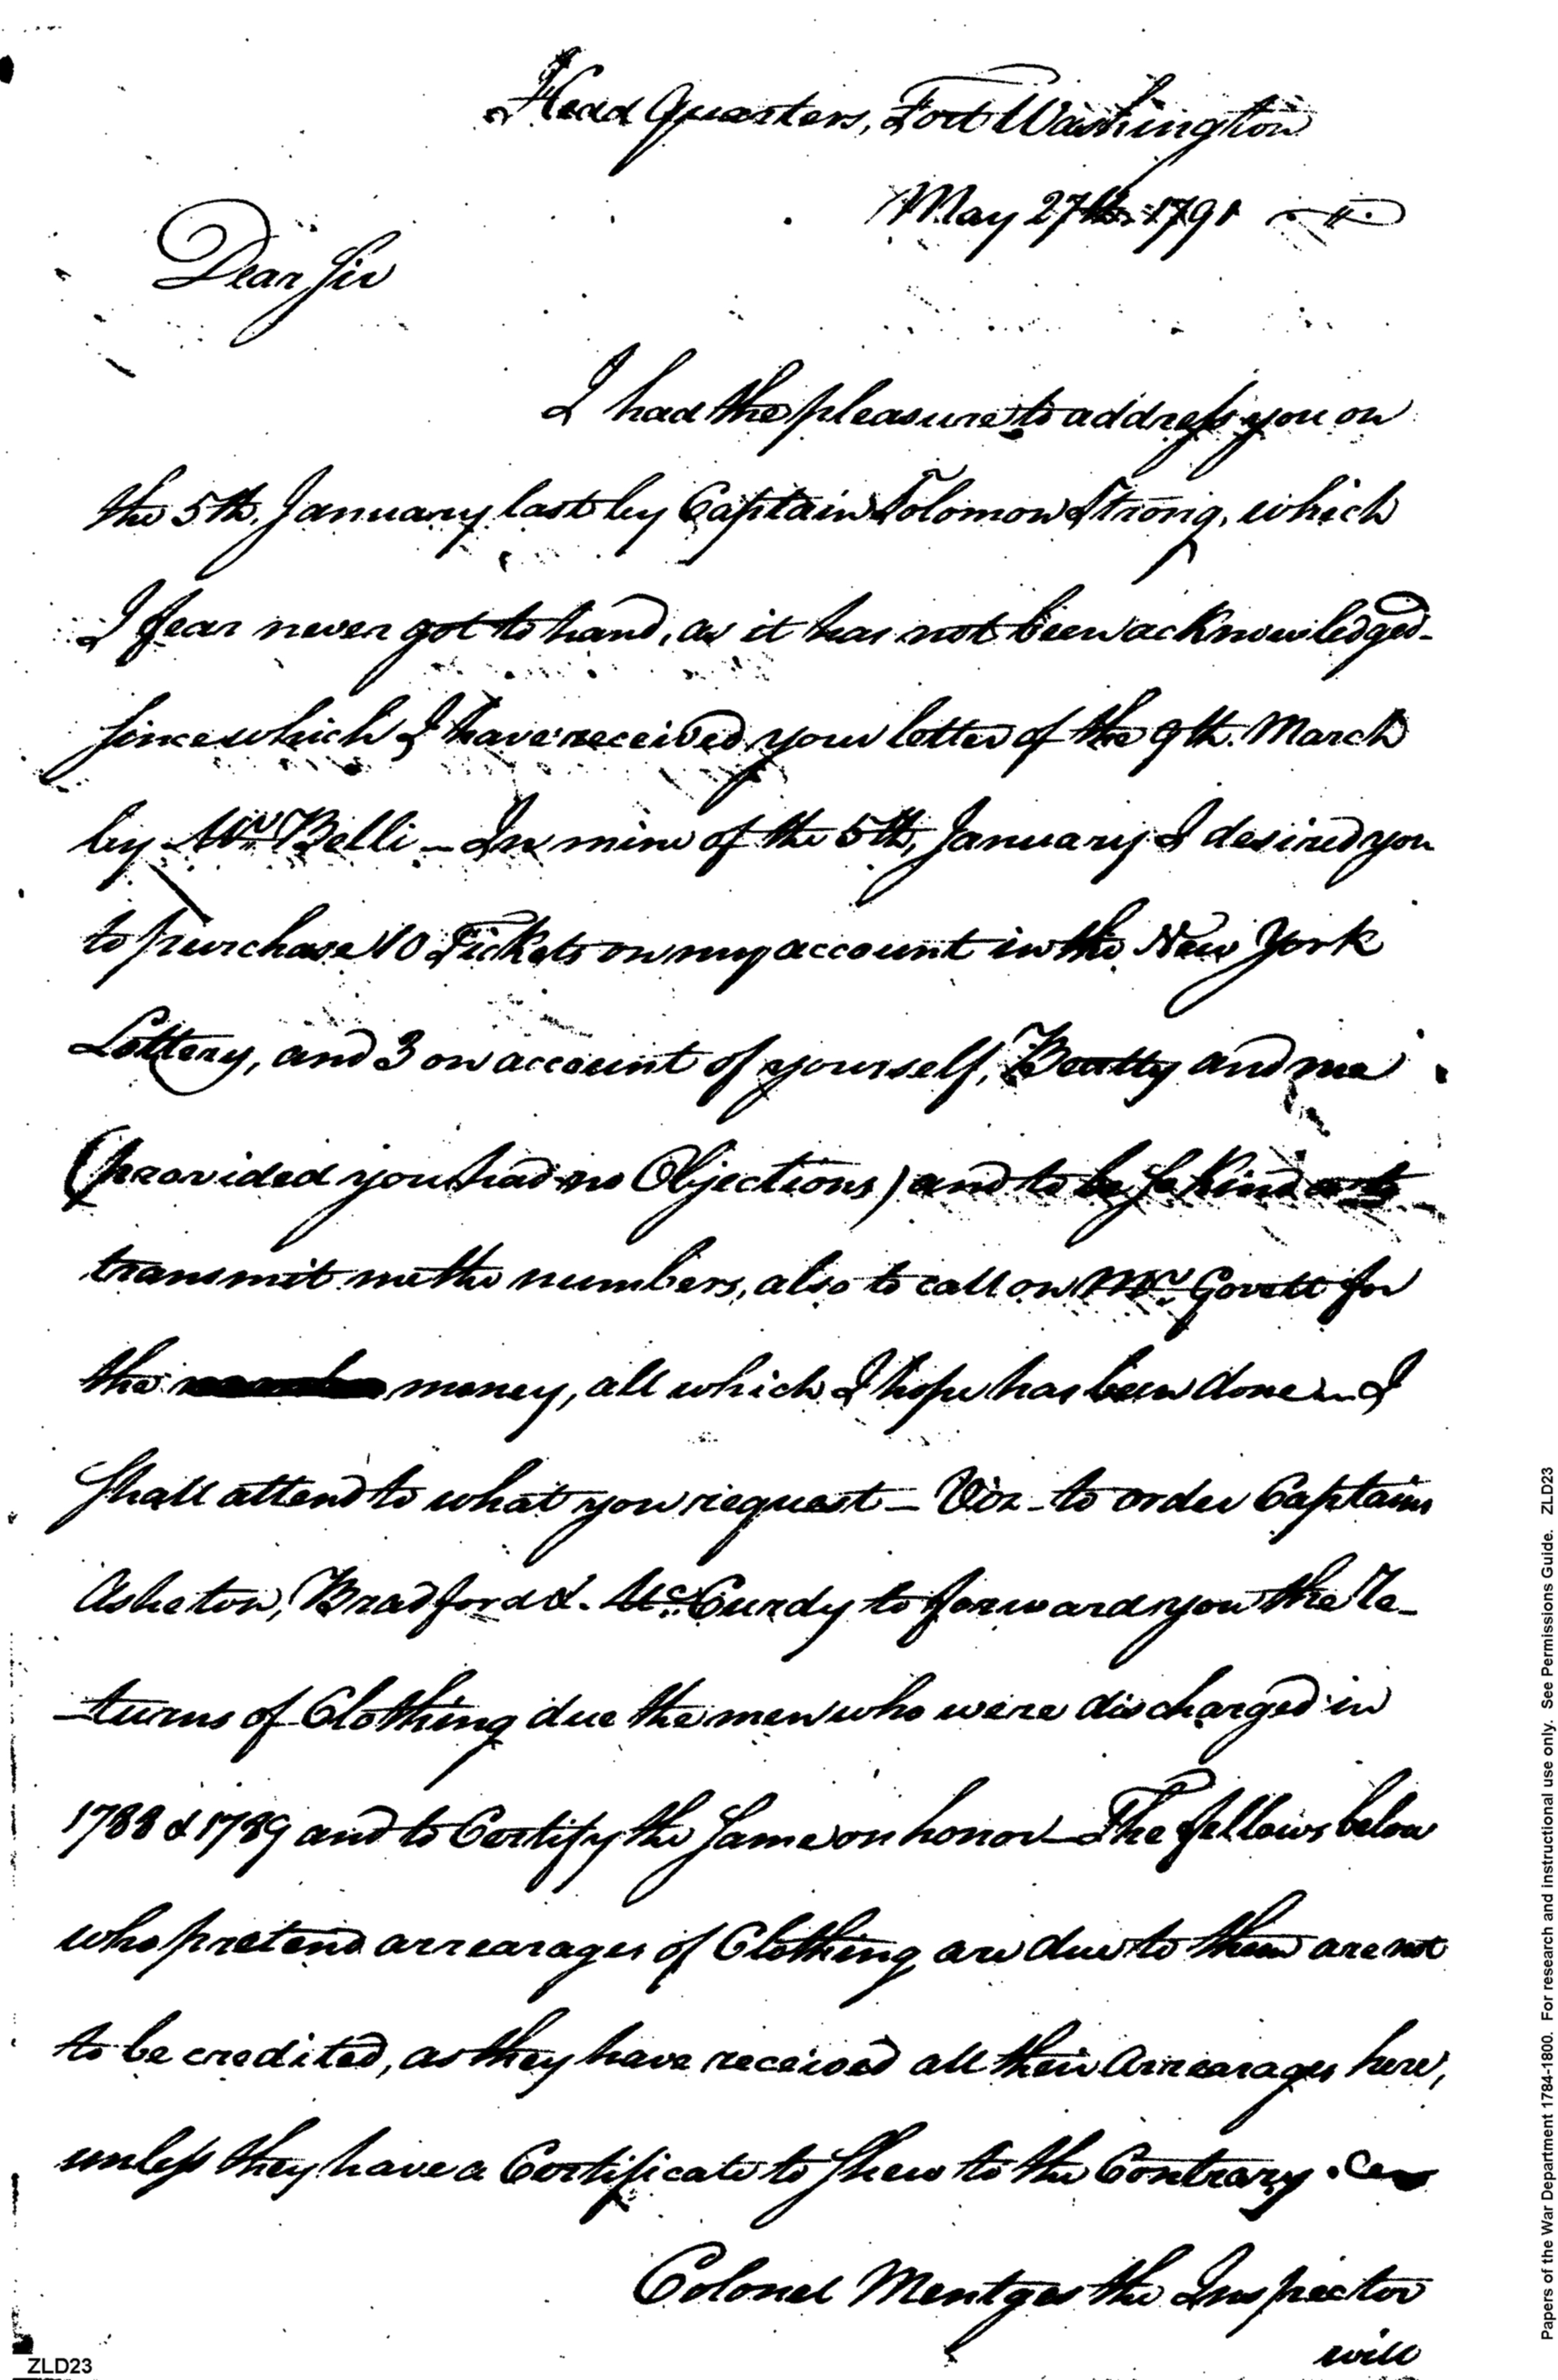 Head Quarters, Fort Washington
May 27th. 1791
Dear Sir
I had the pleasure to address you on
the 5th. January last by Captain Solomon Strong, which
I fear never got to hand, as it has not been acknowledged -
Since which I have received your letter of the 9th. March
by Mr. Belli - In mine of the 5th, January I desired you
to purchase 10 Tickets on my account in the New York
Lottery, and 3 on account of yourself, Beatty and me
(provided you had no Objections) and to be so kind as to
transmit me the numbers, also to call on Mr. Govett for
the money, all which I hope has been done - I
Shall attend to what you request - Viz - to order Captains
Asheton, Bradford & McCurdy to forward you the Re-
-turns of Clothing due the men who were discharged in
1788 & 1789 and to Certify the Same on honor - The fellows below
who pretend arrearages of Clothing are due to them are not
to be credited, as they have received all their Arrearages here,
unless they have a Certificate to Shew to the Contrary.
Colonel Mentges the Inspector
will
ZLD23
Papers of the War Department 1784-1800. For research and instructional use only. See Permissions Guide. ZLD23